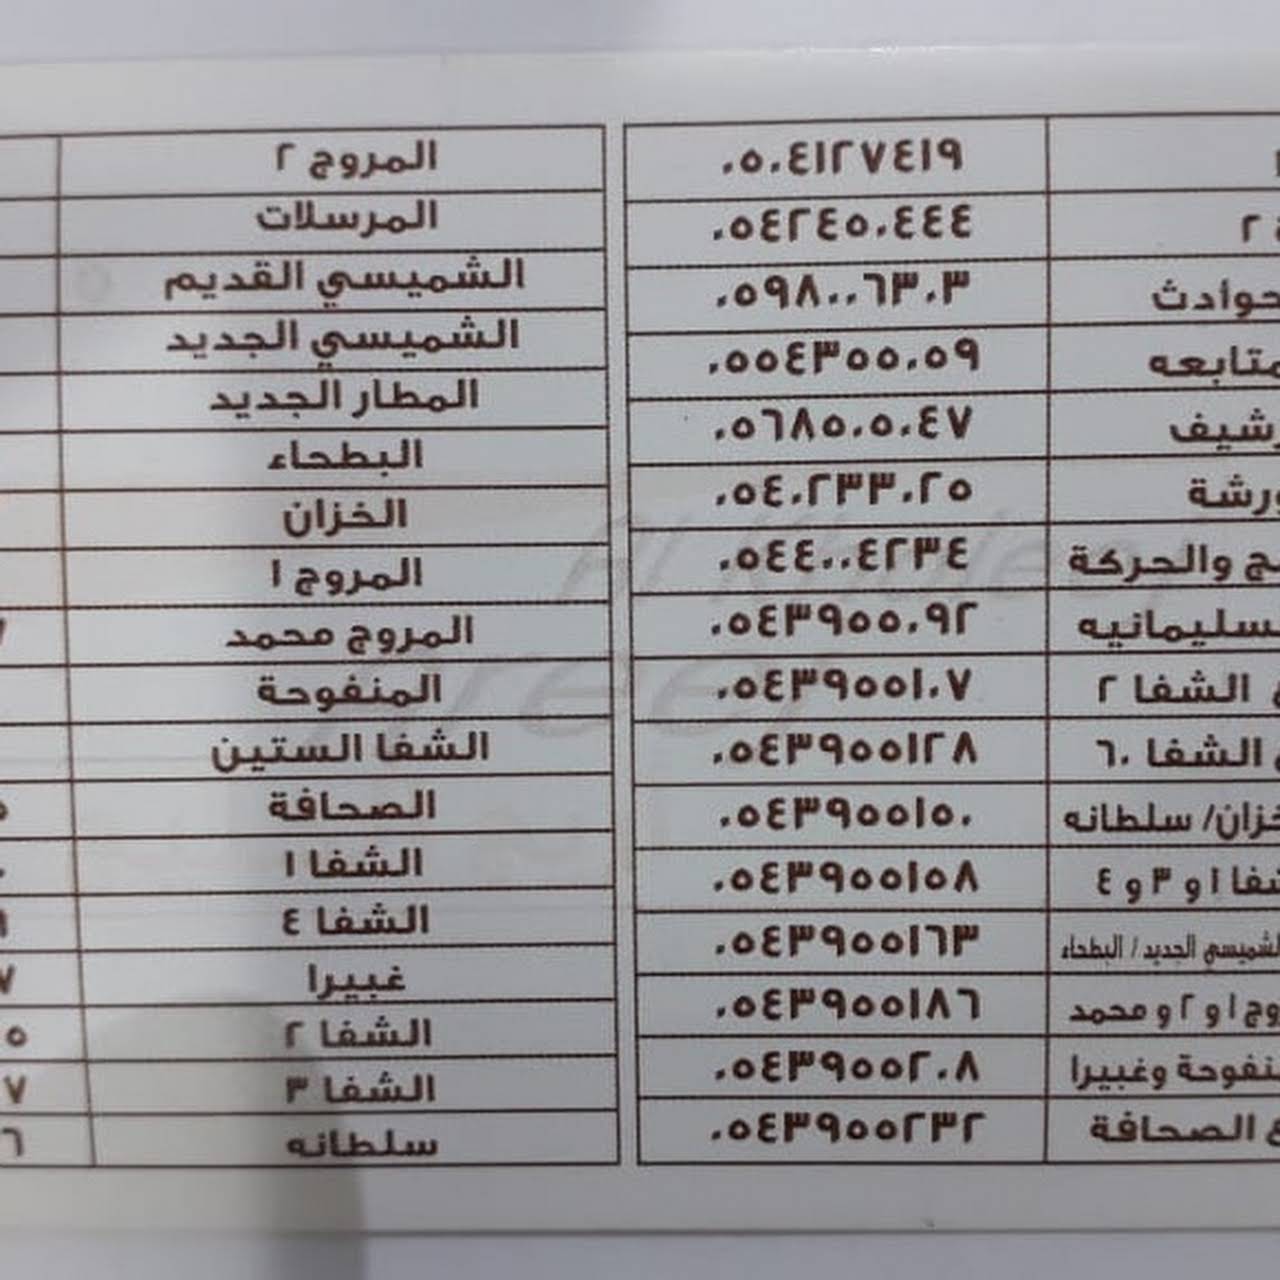 ٠٥٠٤١٢٧٤١٩
٢ ٠٥٤٢٤٥٠٤٤٤
حوادث ٠٥٩٨٠٠٦٣٠٣
متابعه ٠٥٥٤٣٥٥٠٥٩
رشيف ٠٥٦٨٥٠٥٠٤٧
ورشة ٠٥٤٠٢٣٣٠٢٥
ج والحركة ٠٥٤٤٠٠٤٢٣٤
سليمانيه ٠٥٤٣٩٥٥٠٩٢
ع الشفا ٢ ٠٥٤٣٩٥٥١٠٧
الشفا ٦٠ ٠٥٤٣٩٥٥١٢٨
خزان/ سلطانه ٠٥٤٣٩٥٥١٥٠
شفا ١ و ٣ و ٤ ٠٥٤٣٩٥٥١٥٨
الشميسي الجديد / البطحاء ٠٥٤٣٩٥٥١٦٣
وج ١ و ٢ و محمد ٠٥٤٣٩٥٥١٨٦
نفوحة وغبيرا ٠٥٤٣٩٥٥٢٠٨
ع الصحافة ٠٥٤٣٩٥٥٢٣٢
المروج ٢
المرسلات
الشميسي القديم
الشميسي الجديد
المطار الجديد
البطحاء
الخزان
المروج ١
المروج محمد ٧
المنفوحة
الشفا الستين
الصحافة ٥
الشفا ١ ٠
الشفا ٤ ٩
غبيرا ٧
الشفا ٢ ٥
الشفا ٣ ٧
سلطانه ٦